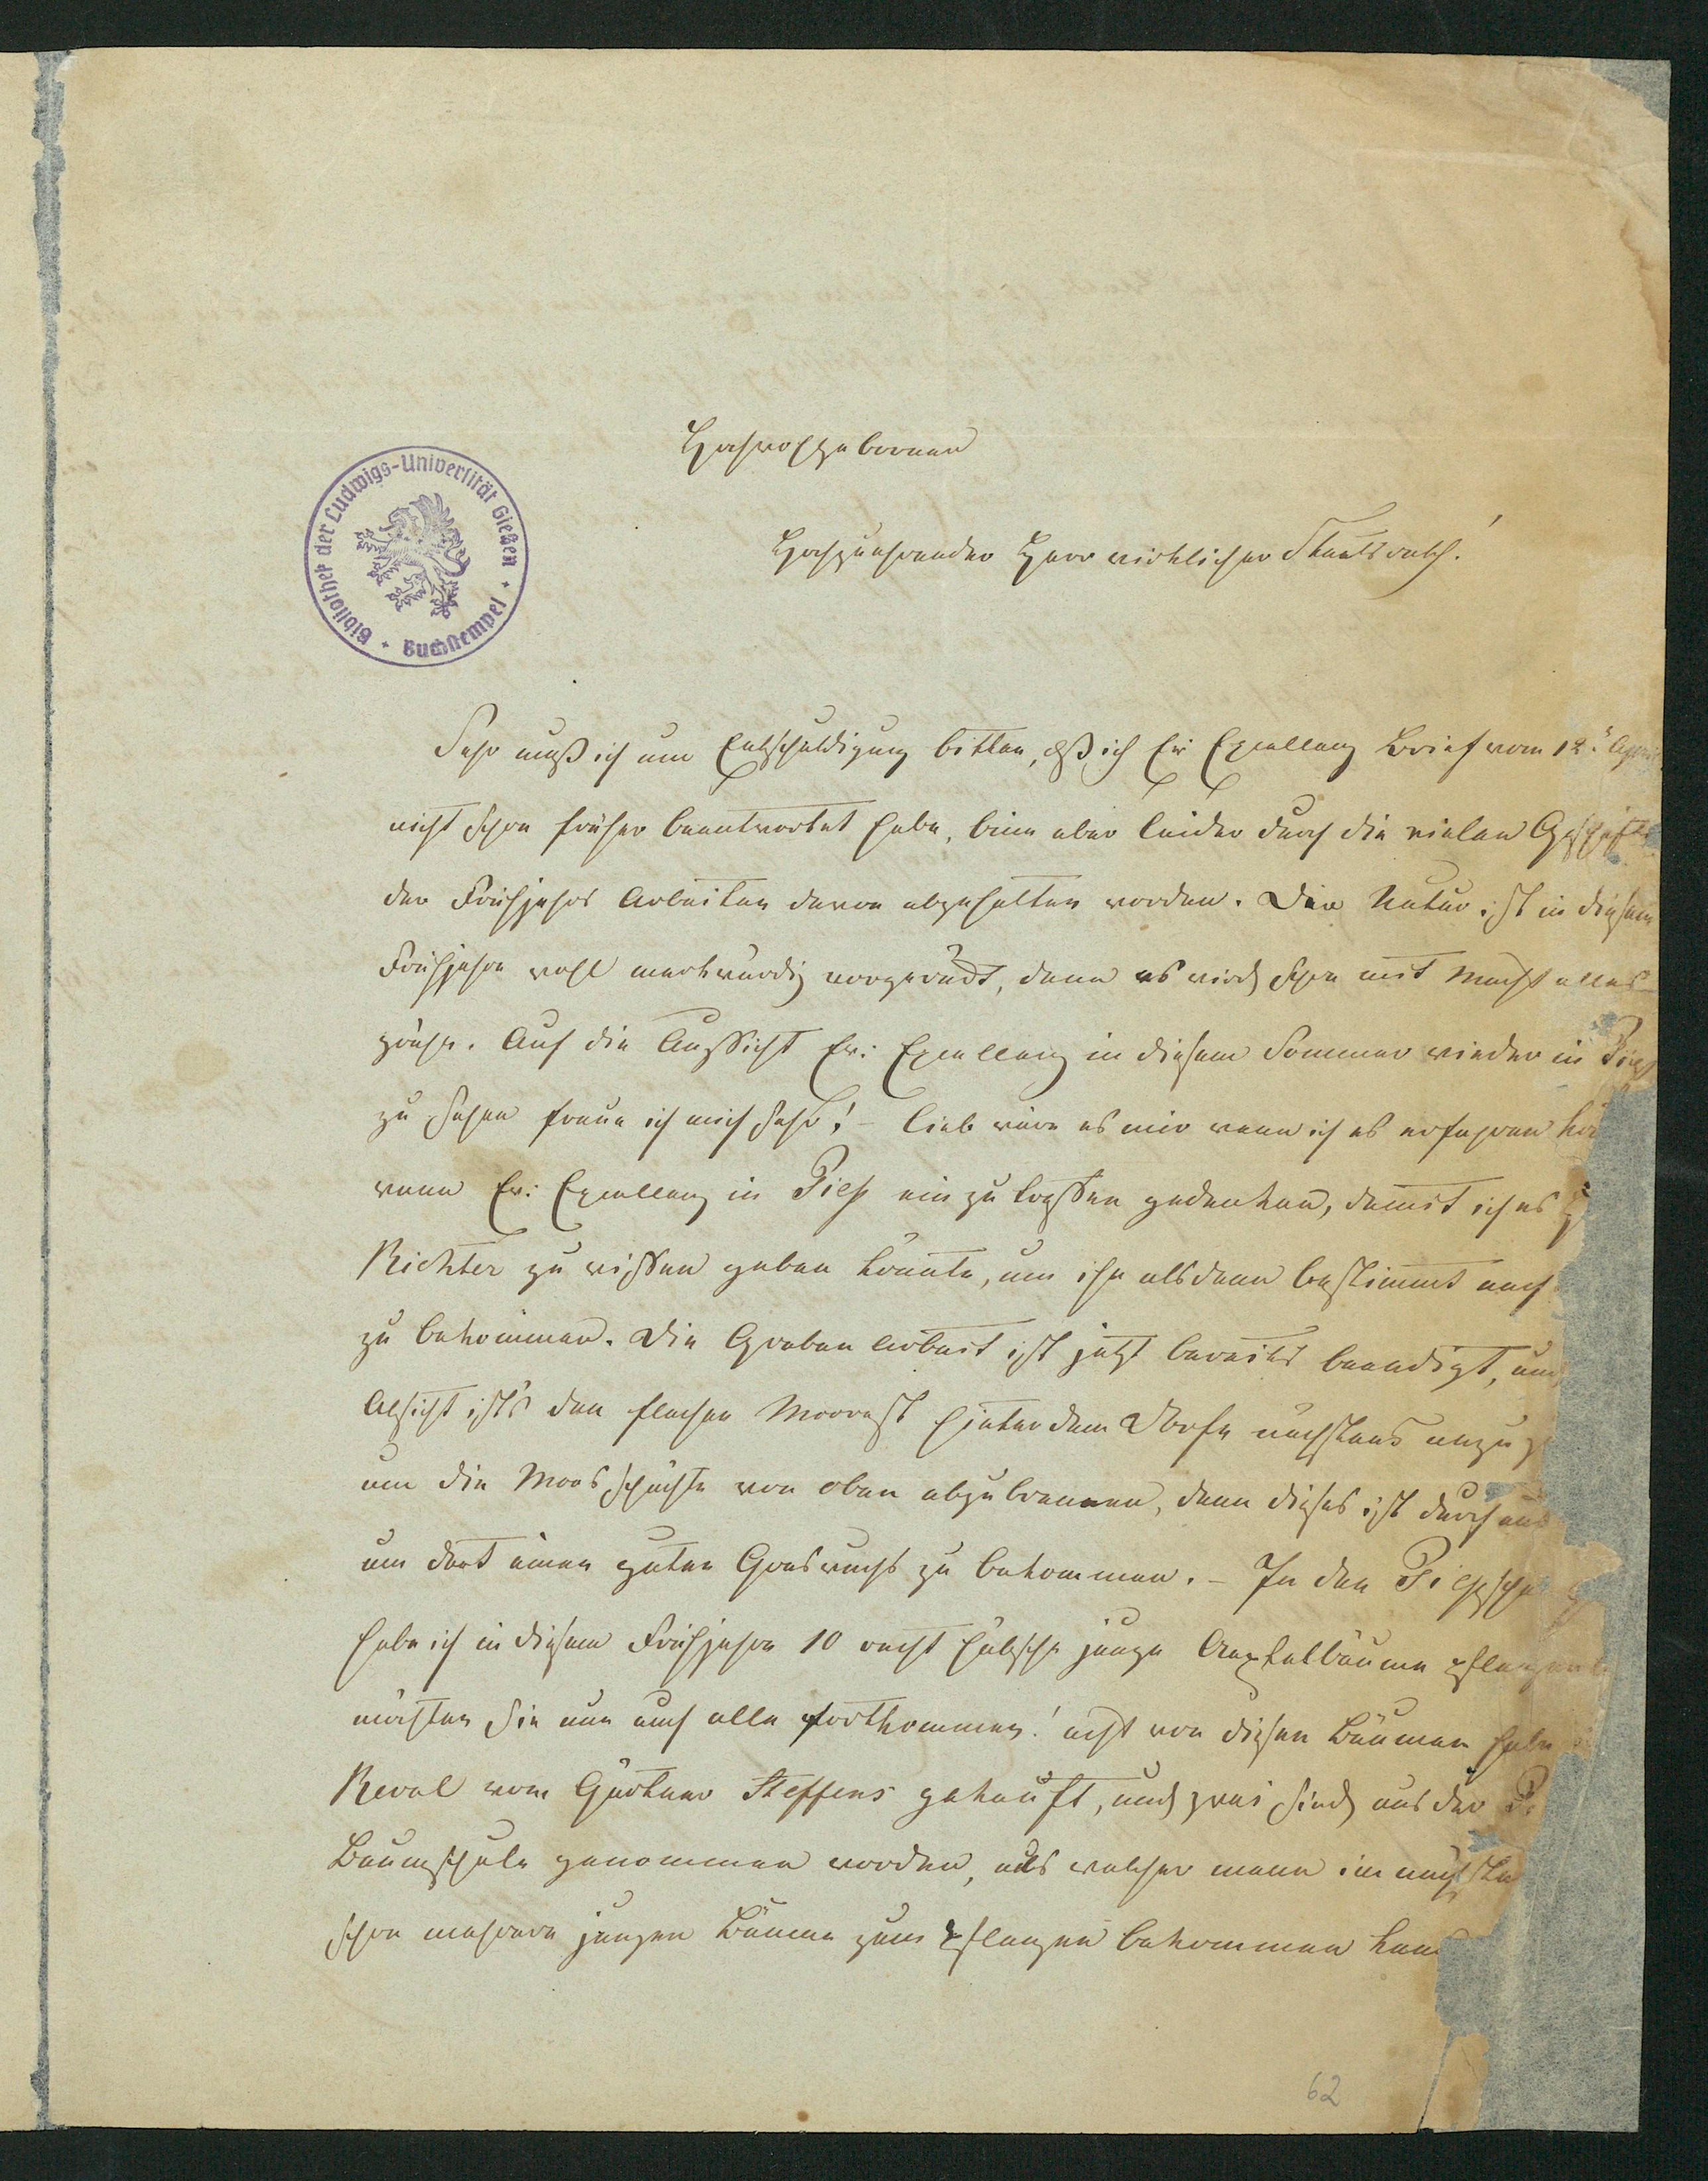 Hochwohlgeborener
Hochzuehrender Herr wirklicher Staatsrath!
Bibliothek der Ludwigs-Universität Gießen
Buchstempel
Sehr muß ich um Entschuldigung bitten, daß ich Ew: Excellenz Brief vom 12. April
nicht schon früher beantwortet habe, binn aber leider durch die vielen Geschäfte
der Frühjahrs Arbeiten davon abgehalten worden. Die Natur ist in diesem
Frühjahre wohl merkwürdig vorgerückt, denn es wird schon mit Macht alles
grühn. Auf die Aussicht Ew: Excellenz in diesem Sommer wieder in Piep
zu sehen freue ich mich sehr! – lieb wäre es mir wenn ich es erfahren
wenn Ew: Excellenz in Piep ein zu treffen gedenken, damit ich es
Richter zu wissen geben könnte, um ihn alsdann bestimmt nach
zu bekommen. Die Graben Arbeit ist jetzt bereits beendigt, und
Absicht ist's den flachen Morast hinter dem Dorfe nächstens anzu
um die Moosschichte von oben abzubrennen, denn dieses ist durchaus
um dort einen guten Graswuchs zu bekommen. – In den Piepschen
habe ich in diesem Frühjahre 10 recht hübsche junge Aepfelbäume pflanzen
möchten Sie nun auch alle forthkommen! acht von diesen Bäumen habe
Reval vom Gärtner Steffens gekauft, und zwei sind aus der
Baumschule genommen worden, aus welcher mann im nächsten
schon mehrere jungen Bäume zum Pflanzen bekommen kann
62